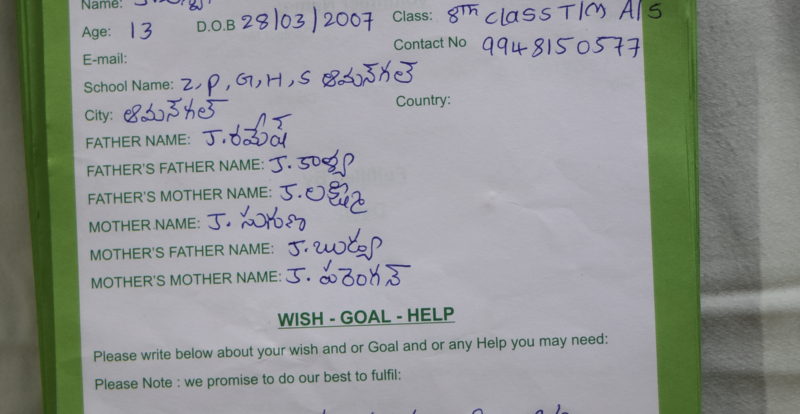 Name: J.
Age: 13 D.O.B 28/03/2007 Class: 8TH class T/M A/S
E-mail: Contact No 9948150577
School Name: Z, P, G, H, S ఆమన్‌గల్
City: ఆమన్‌గల్ Country:
FATHER NAME: J. రమేష్
FATHER'S FATHER NAME: J. కాళ్య
FATHER'S MOTHER NAME: J. లక్ష్మి
MOTHER NAME: J. సుగుణ
MOTHER'S FATHER NAME: J. బుడ్య
MOTHER'S MOTHER NAME: J.
WISH - GOAL - HELP
Please write below about your wish and or Goal and or any Help you may need:
Please Note : we promise to do our best to fulfil: